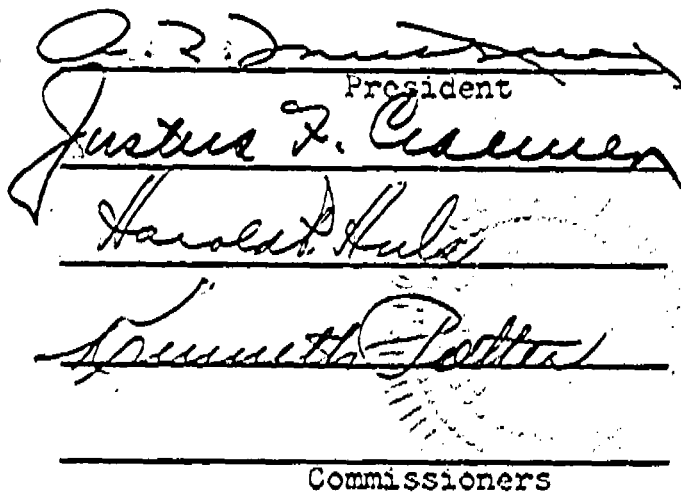 President
Justus F. Craemer
Harold P. Huls
Kenneth Potter
Commissioners